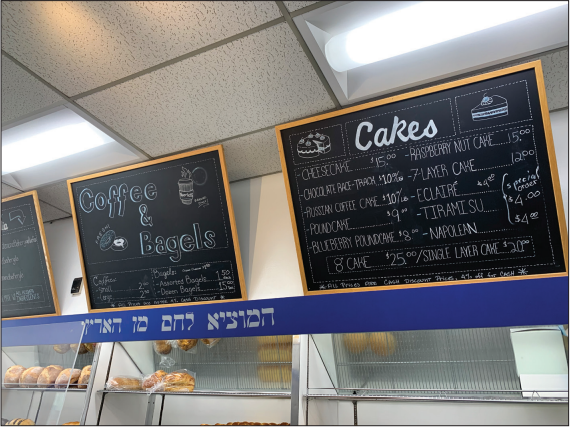 Coffee
&
Bagels
FRESH
Coffee
Small 2.00
Large
Bagels
- Assorted Bagels 1.50
- Dozen Bagels 15.00
Cakes
- CHEESECAKE $15.00
- CHOCOLATE RACE-TRACK $10/lb
- RUSSIAN COFFEE CAKE $10/lb
- POUNDCAKE $9.00
- BLUEBERRY POUNDCAKE $8.00
- RASPBERRY NUT CAKE 15.00
- 7-LAYER CAKE 12.00
- ECLAIRE $4.00
- TIRAMISU
- NAPOLEAN
special order
$4.00
$4.00
8" CAKE $25.00/SINGLE LAYER CAKE $20.00
* All Prices are Cash Discount Prices, 4% off for CASH *
המוציא לחם מן הארץ